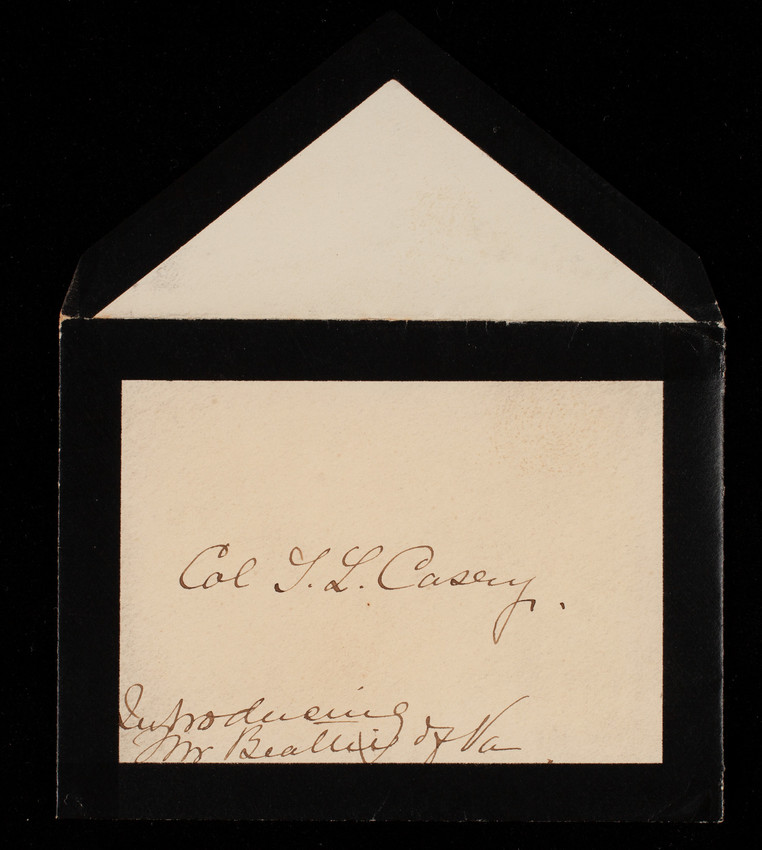 Col T. L. Casey.
Introducing
Mr Beattie of Va